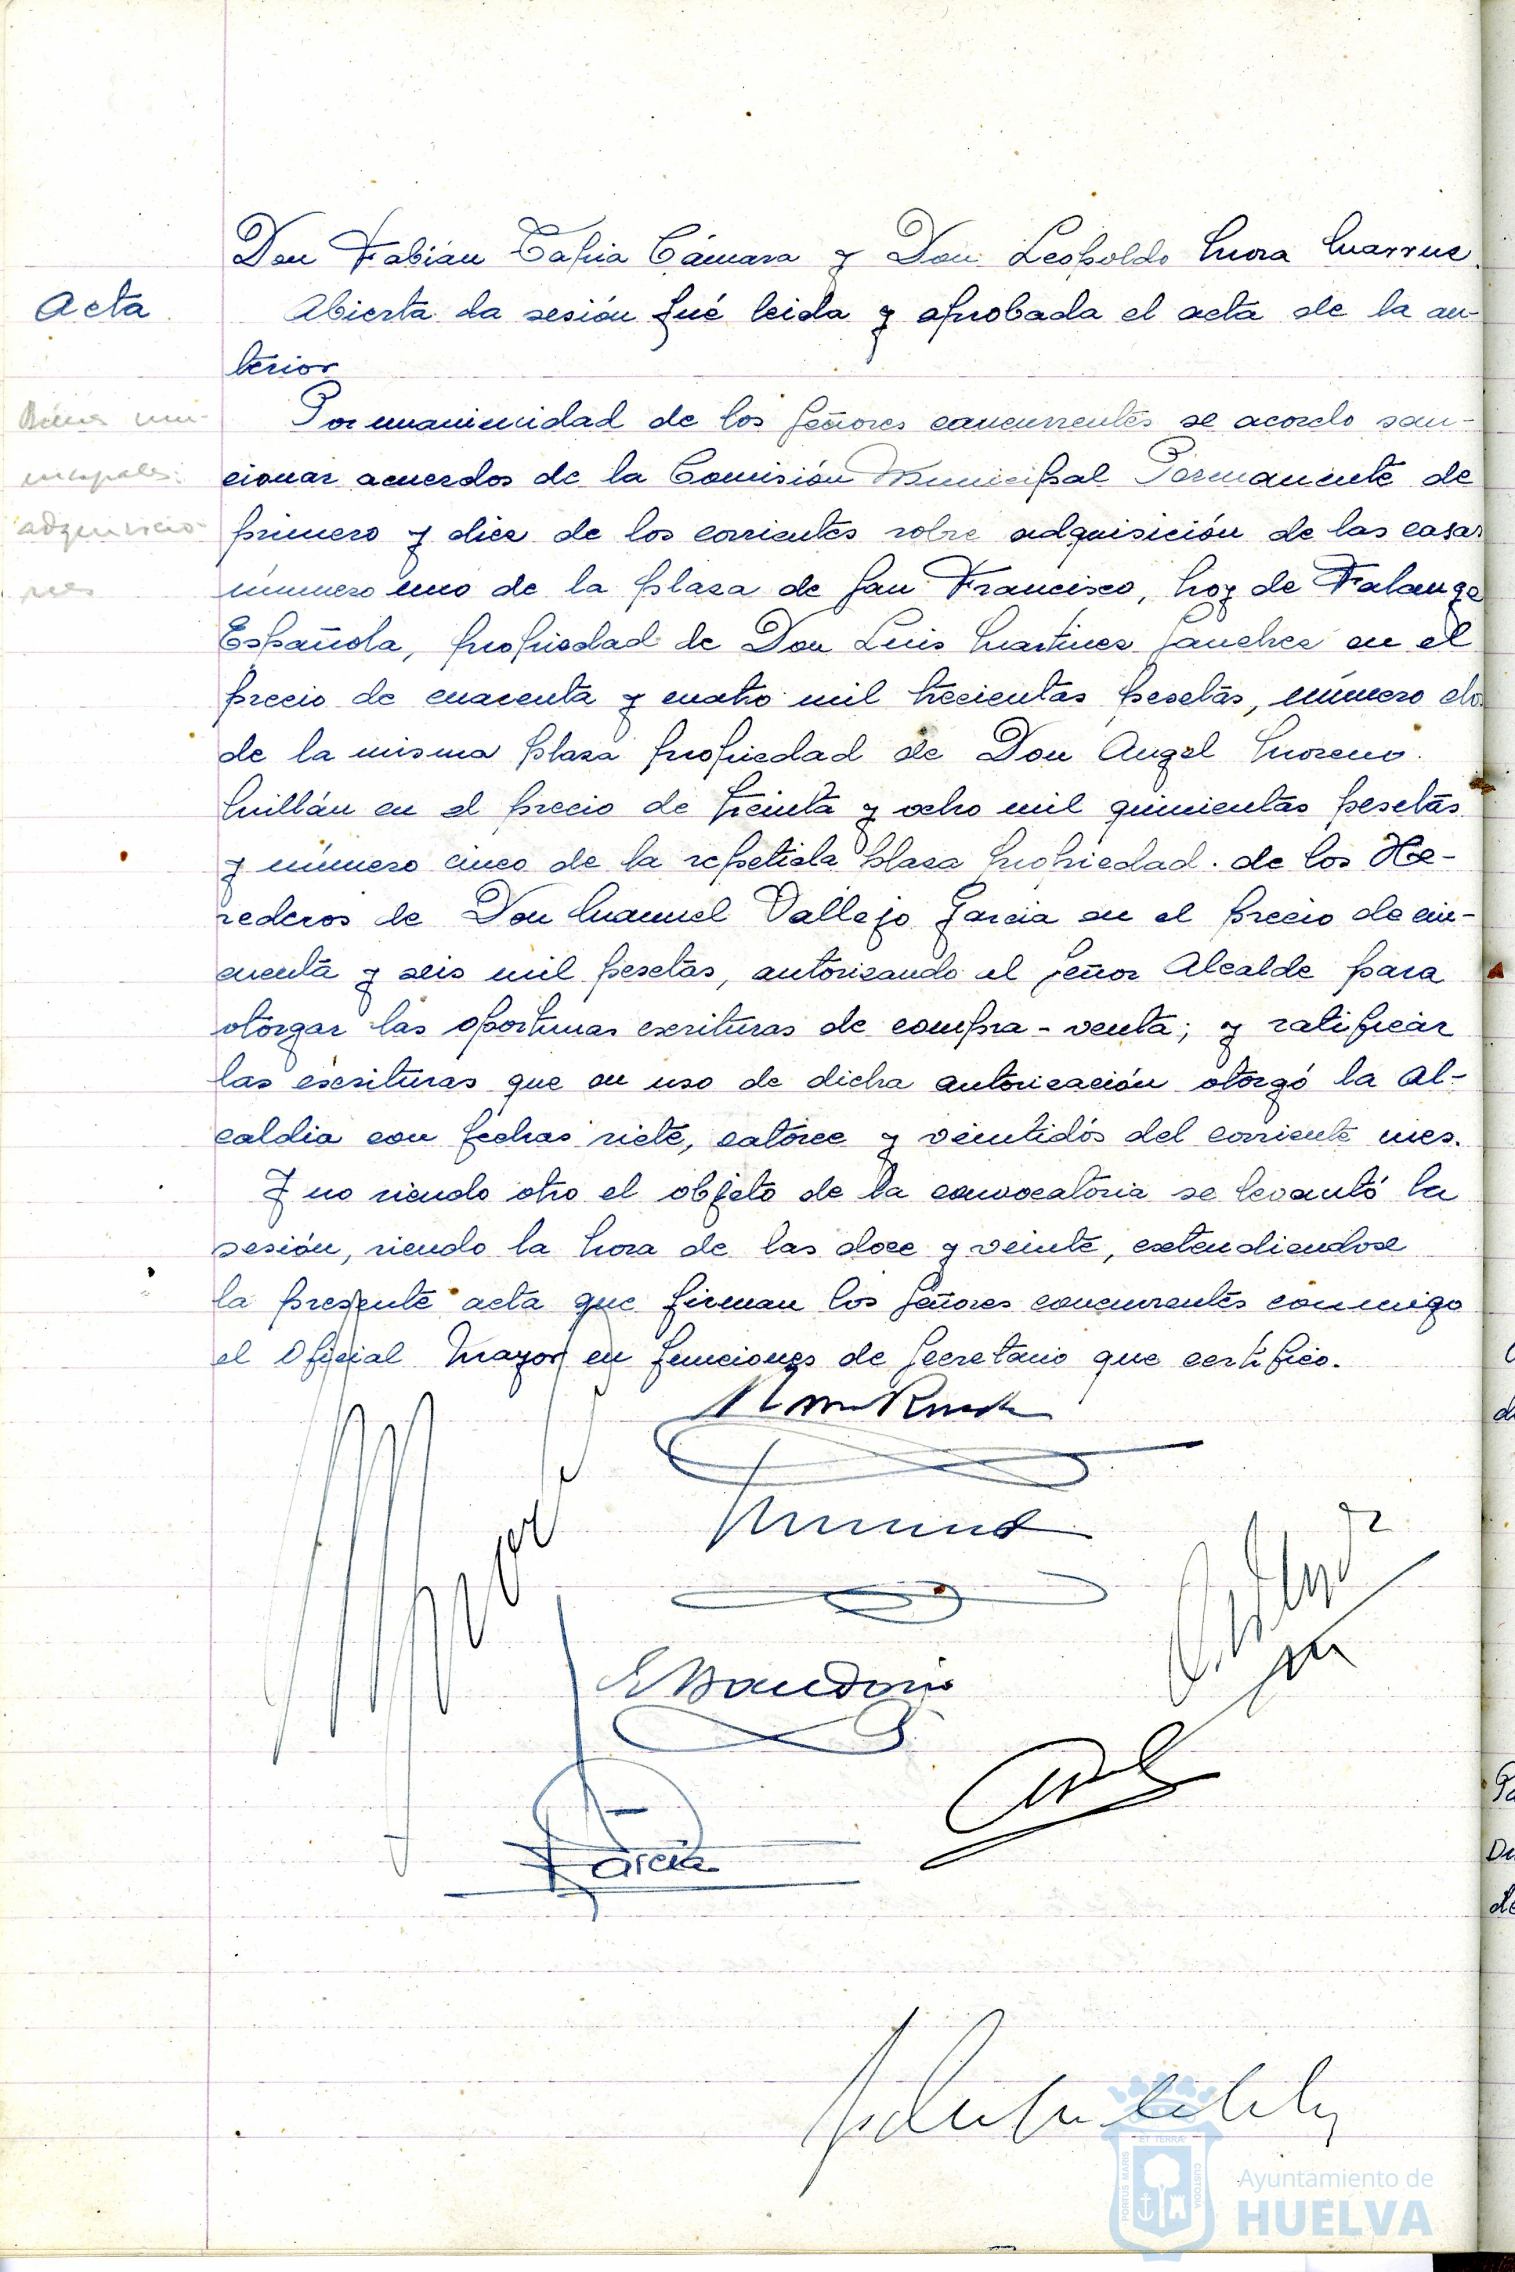 Don Fabián Tapia Cámara y Don Leopoldo Mora Marrue.
Acta
Abierta la sesión fué leida y aprobada el acta de la an-
terior
Bienes mu-
nicipales:
adquisicio-
nes
Por unanimidad de los señores concurrentes se acordo san-
cionar acuerdos de la Comisión Municipal Permanente de
primero y diez de los corrientes sobre adquisición de las casas
número uno de la plaza de San Francisco, hoy de Falange
Española, propiedad de Don Luis Martinez Sanchez en el
precio de cuarenta y cuatro mil trecientas pesetas, número dos
de la misma plaza propiedad de Don Angel Moreno
Millán en el precio de treinta y ocho mil quinientas pesetas
y número cinco de la repetida plaza propiedad de los He-
rederos de Don Manuel Vallejo Garcia en el precio de cin-
cuenta y seis mil pesetas, autorizando al señor Alcalde para
otorgar las oportunas escrituras de compra-venta; y ratificar
las escrituras que en uso de dicha autorización otorgó la Al-
caldia con fechas siete, catorce y veintidós del corriente mes.
Y no siendo otro el objeto de la convocatoria se levantó la
sesión, siendo la hora de las doce y veinte, extendiendose
la presente acta que firman los señores concurrentes conmigo
el Oficial Mayor en funciones de Secretario que certifico.
Garcia
ET TERRÆ
PORTUS MARIS
CUSTODIA
Ayuntamiento de
HUELVA